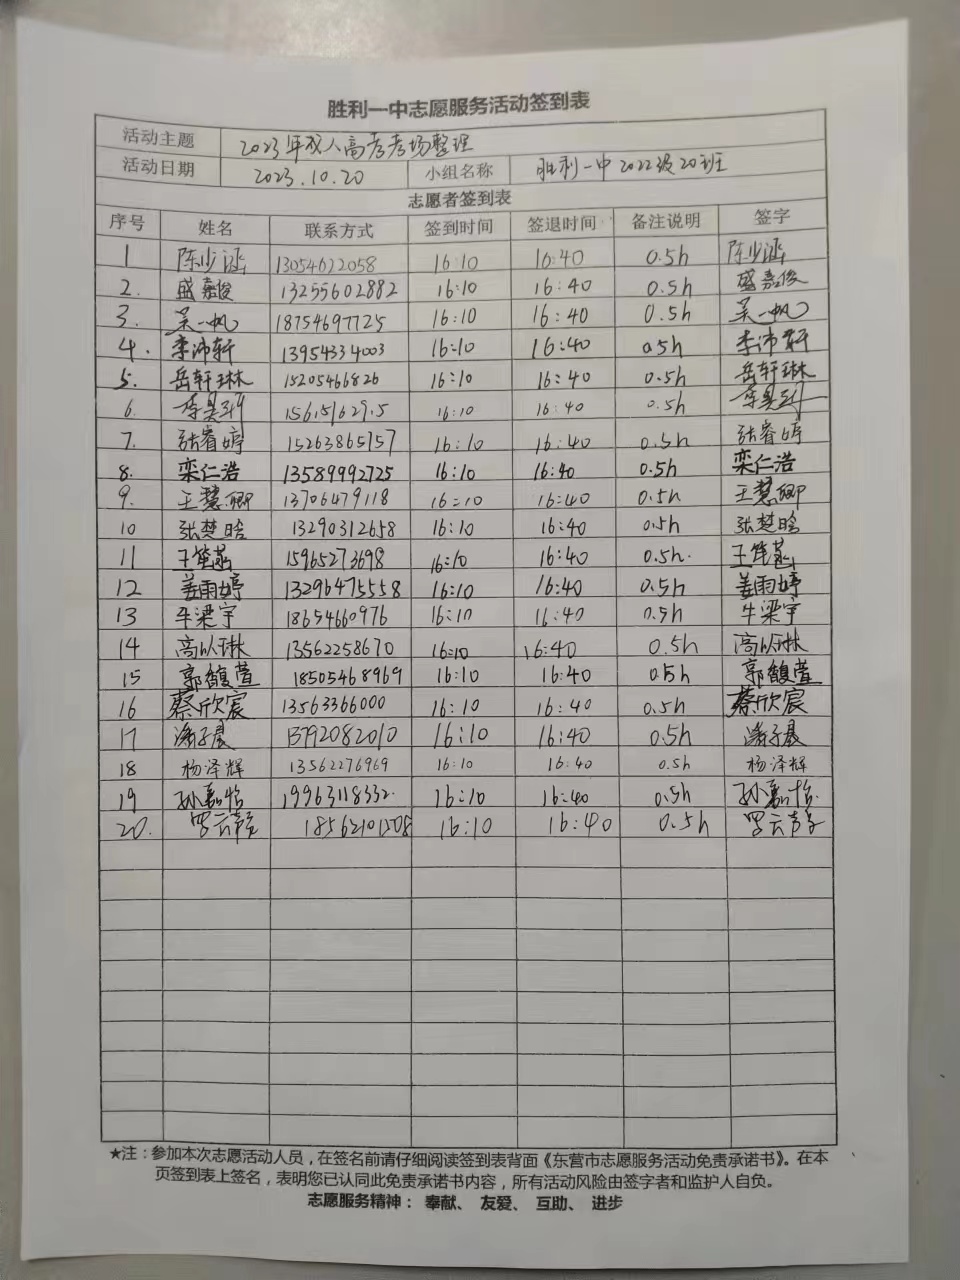 胜利一中志愿服务活动签到表
活动主题 2023年成人高考考场整理
活动日期 2023.10.20 小组名称 胜利一中2022级20班
志愿者签到表
序号 姓名 联系方式 签到时间 签退时间 备注说明 签字
1 陈少涵 13054622058 16:10 16:40 0.5h 陈少涵
2. 盛嘉俊 13255602882 16:10 16:40 0.5h 盛嘉俊
3. 吴一帆 18754697725 16:10 16:40 0.5h 吴一帆
4. 李沛轩 13954334003 16:10 16:40 0.5h 李沛轩
5. 岳轩琳 15205466826 16:10 16:40 0.5h 岳轩琳
6. 16:10 16:40 0.5h
7. 张睿婷 15263865757 16:10 16:40 0.5h 张睿婷
8. 栾仁浩 13589992725 16:10 16:40 0.5h 栾仁浩
9. 王慧卿 13706479118 16:10 16:40 0.5h 王慧卿
10 张楚晗 13290312658 16:10 16:40 0.5h 张楚晗
11 15965273698 16:10 16:40 0.5h.
12 姜雨婷 13296475558 16:10 16:40 0.5h 姜雨婷
13 牛梁宇 18654660976 16:10 16:40 0.5h 牛梁宇
14 高以琳 13562258670 16:10 16:40 0.5h 高以琳
15 郭馥萱 18505468969 16:10 16:40 0.5h 郭馥萱
16 蔡欣宸 13563366000 16:10 16:40 0.5h 蔡欣宸
17 潘子晨 13792082010 16:10 16:40 0.5h 潘子晨
18 杨泽辉 13562276969 16:10 16:40 0.5h 杨泽辉
19 孙嘉怡 19963118332. 16:10 16:40 0.5h 孙嘉怡
20. 16:10 16:40 0.5h
★注：参加本次志愿活动人员，在签名前请仔细阅读签到表背面《东营市志愿服务活动免责承诺书》。在本
页签到表上签名，表明您已认同此免责承诺书内容，所有活动风险由签字者和监护人自负。
志愿服务精神： 奉献、 友爱、 互助、 进步